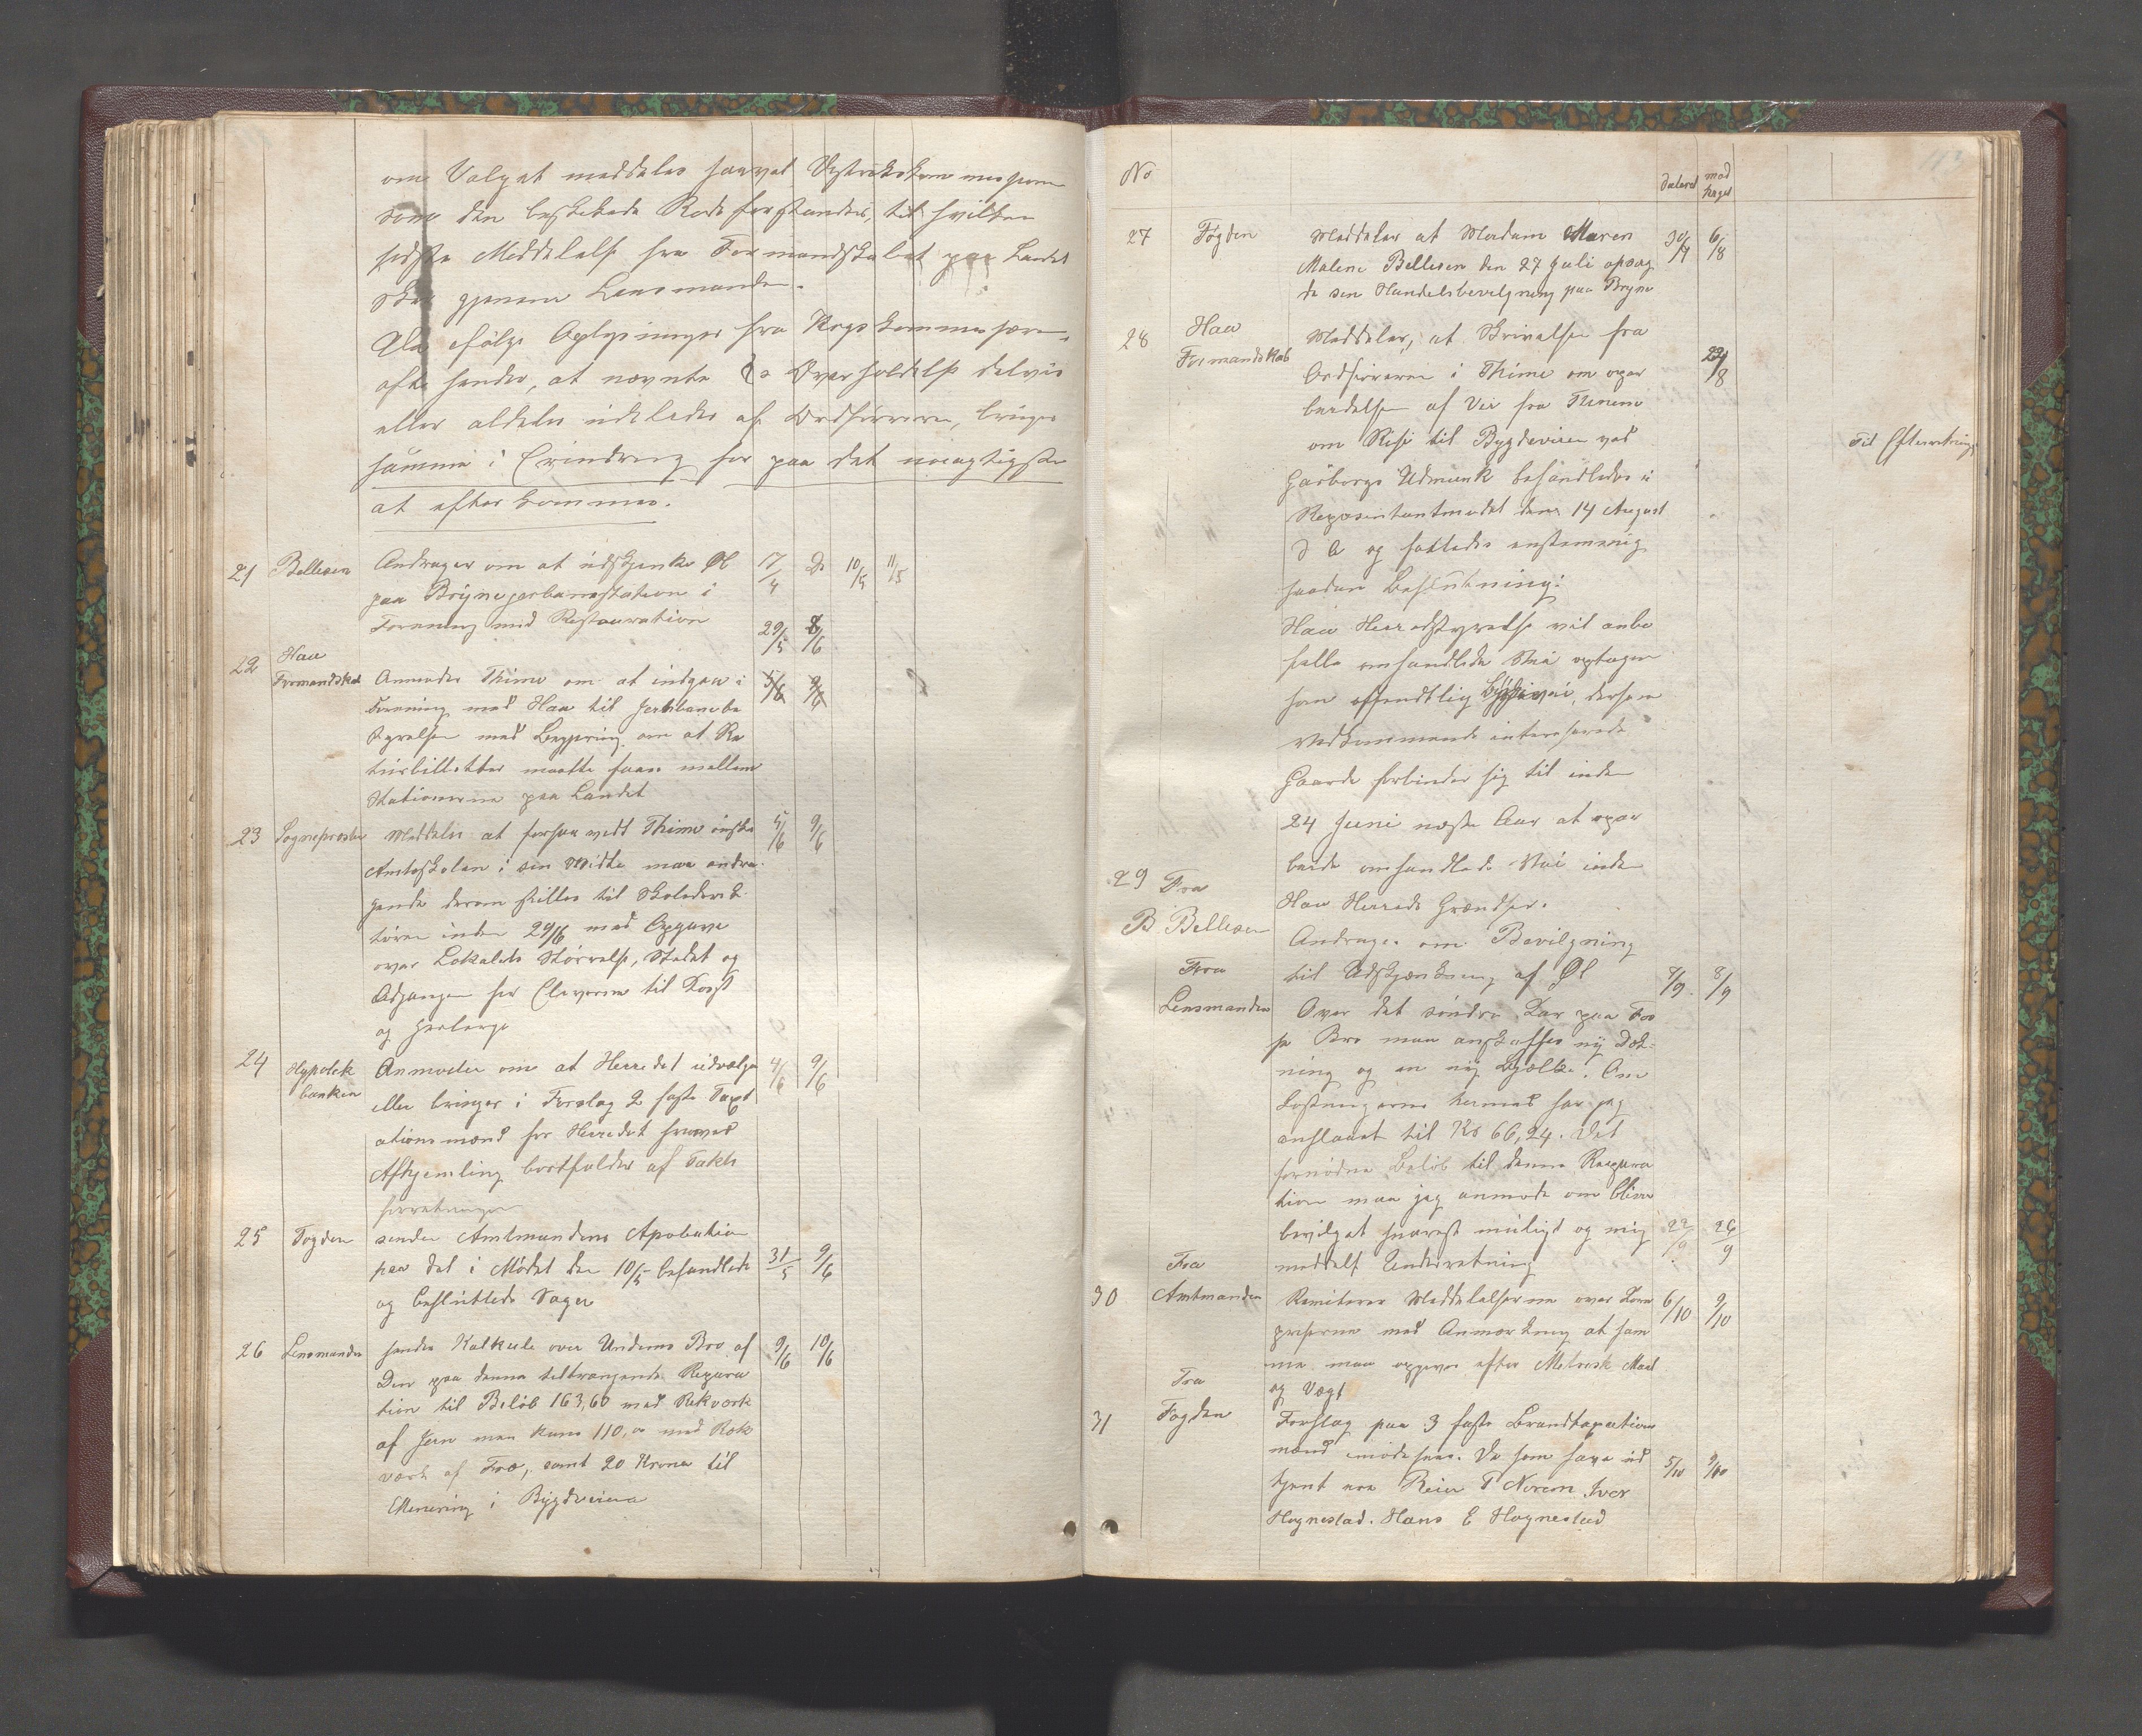 om Valget meddeles saavel
som den beskikkede Rodeforstander, til hvilken
sidste Meddelelse fra Formandskabet paa Landet
skee gjennem Lensmanden.
Da ifølge Oplysninger fra
ofte hender, at nævnte Overholdelse delvis
eller aldeles udelades af Ordføreren, bringes
samme i Erindring for paa det nøiagtigste
at efterkommes.
21 Bellesen Andrager om at udskjenke Øl 17/4 10/5 11/5
paa Bryne jerbanestation i
Forening med Restauration 29/5 8/6
22 Haa
Formandskab Anmoder Thime om at indgaa i 5/6 9/6
Forening med Haa til Jernbanebe
styrelsen med Begjæring om at Re
turbilletter maatte faaes mellem
Stationerne paa Landet
23 Sognepresten Meddeler at forsaavidt Thime ønske 4/6 9/6
Amtsskolen i sin Midte maa andra
gende derom stilles til Skoledirek
tøren inden 29/6 med Opgave
over Lokalets Størrelse, Stedet og
Adgangen for Eleverne til Kost
og Husleie
24 Hypothek
banken Anmoder om at Herredet udvælger 4/6 9/6
eller bringer i Forslag 2 faste Taxt
ationsmænd for Herredet hvorved
Afhjemling bortfalder af Takst
forretninger
25 Fogden sender Amtmandens Apobation 31/5 9/6
paa det i Mødet den 10/5 behandlede
og besluttede Sager
26 Lensmanden sender Kalkule over Undems Bro af 9/6 10/6
Den paa denne tiltrængende Repara
tion til Beløb 163,60 med Rekværk
af Jern men kuns 110,00 med Rek
værk af Træ, samt 20 Kroner til
Minering i Bygdeveiene
No dateret mod
taget
27 Fogden Meddeler at Madam Maren 30/7 6/8
Malene Bellesen den 27 Juli opsag
de sin Handelsbevilgning paa Bryne
28 Haa
Formandskab Meddeler, at Skrivelsen fra 22/8
Ordføreren i Thime om opar
beidelsen af Vei fra Thime
om Risi til Bygdeveien ved Til Efterretning
Gaiborgs Udmark behandledes i
Repræsentantmødet den 14 August
d A og fattedes enstemmig
saadan Beslutning:
Haa Herredstyrelse vil anbe
falle omhandlede Vei optagen
som offendtlig Bygdevei, dersom
vedkommende interesserede
Gaarde forbinder sig til inden
24 Juni næste Aar at opar
beide omhandlede Vei inden
Haa Herreds Grændser.
29 Fra
B Bellesen Andrager om Bevilgning
til Udskjænkning af Øl 7/9 8/9
Fra
Lensmanden Over det søndre Kar paa Fos
se Bro maa anskaffes ny Dæk
ning og en ny Bjælke. Om
kostningerne hermed har jeg
anslaaet til Kr 66,24. Det
fornødne Beløb til denne Repara
tion maa jeg anmode om bliver
bevilget snarest muligt og mig 22/9 26/9
meddelt Underretning
Fra
30 Amtmanden Remiterer Meddelelserne over Korn 6/10 9/10
priserne med Anmærkning at sam
me maa opgives efter Metrisk Maal
og Vægt
Fra
31 Fogden Forslag paa 3 faste Brandtaxations
mænd imødesees. De som have ud 5/10 9/10
tjent ere Reier T Norem Iver
Hognestad. Hans E Hognestad